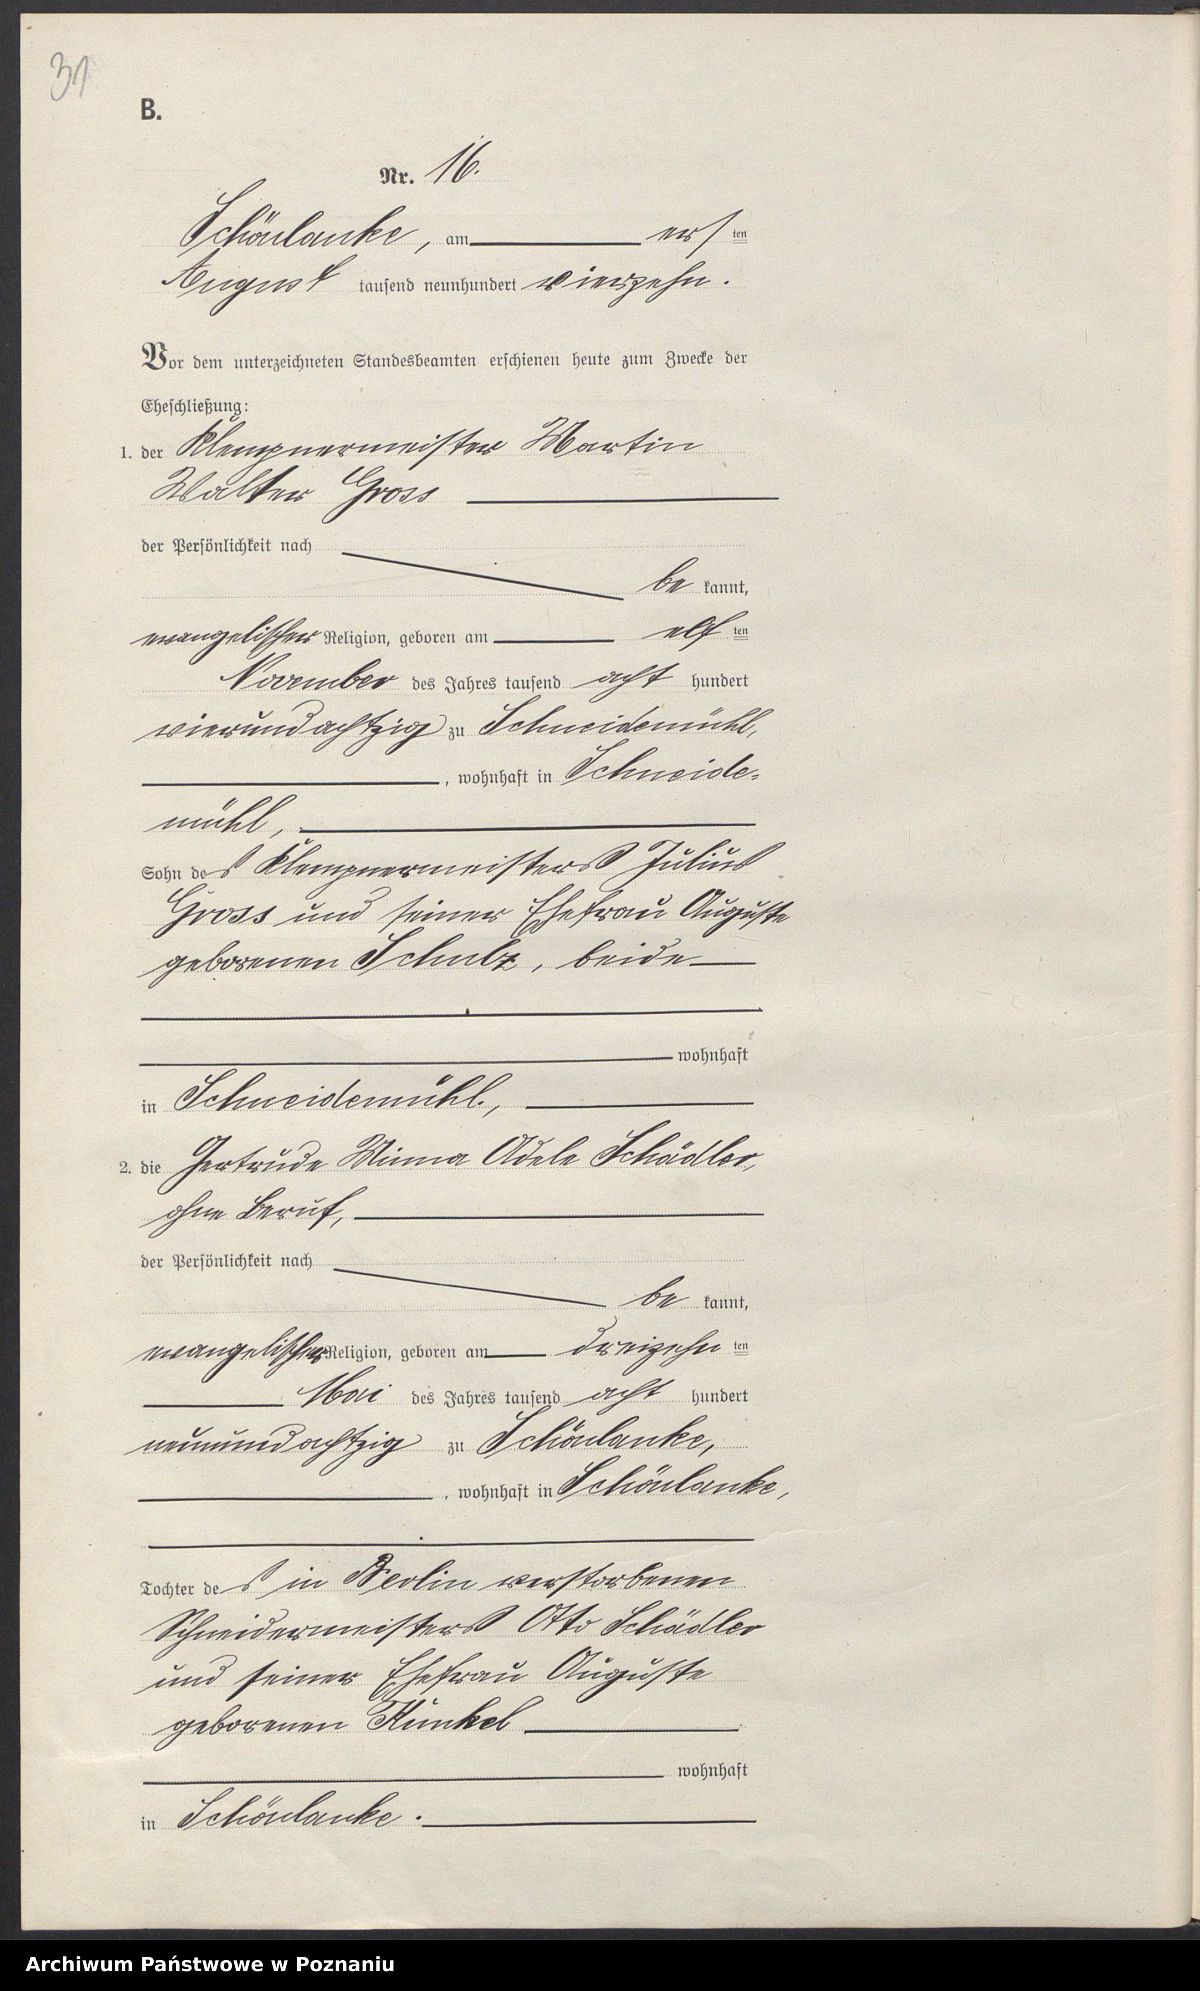 31
B.
Nr. 16.
Schönlanke, am ersten
August tausend neunhundert vierzehn.
Vor dem unterzeichneten Standesbeamten erschienen heute zum Zwecke der
Eheschließung:
1. der Klempnermeister Martin
Walter Gross
der Persönlichkeit nach
be kannt,
evangelischer Religion, geboren am elften
November des Jahres tausend acht hundert
vierundachtzig zu Schneidemühl,
, wohnhaft in Schneide-
mühl,
Sohn des Klempnermeisters Julius
Gross und seiner Ehefrau Auguste
geborenen Schulz, beide
wohnhaft
in Schneidemühl,
2. die Gertrude Minna Adele Schädler,
ohne Beruf,
der Persönlichkeit nach
be kannt,
evangelischer Religion, geboren am dreizehnten
Mai des Jahres tausend acht hundert
neunundachtzig zu Schönlanke,
, wohnhaft in Schönlanke,
Tochter des in Berlin verstorbenen
Schneidermeisters Otto Schädler
und seiner Ehefrau Auguste
geborenen Kunkel
wohnhaft
in Schönlanke.
Archiwum Państwowe w Poznaniu